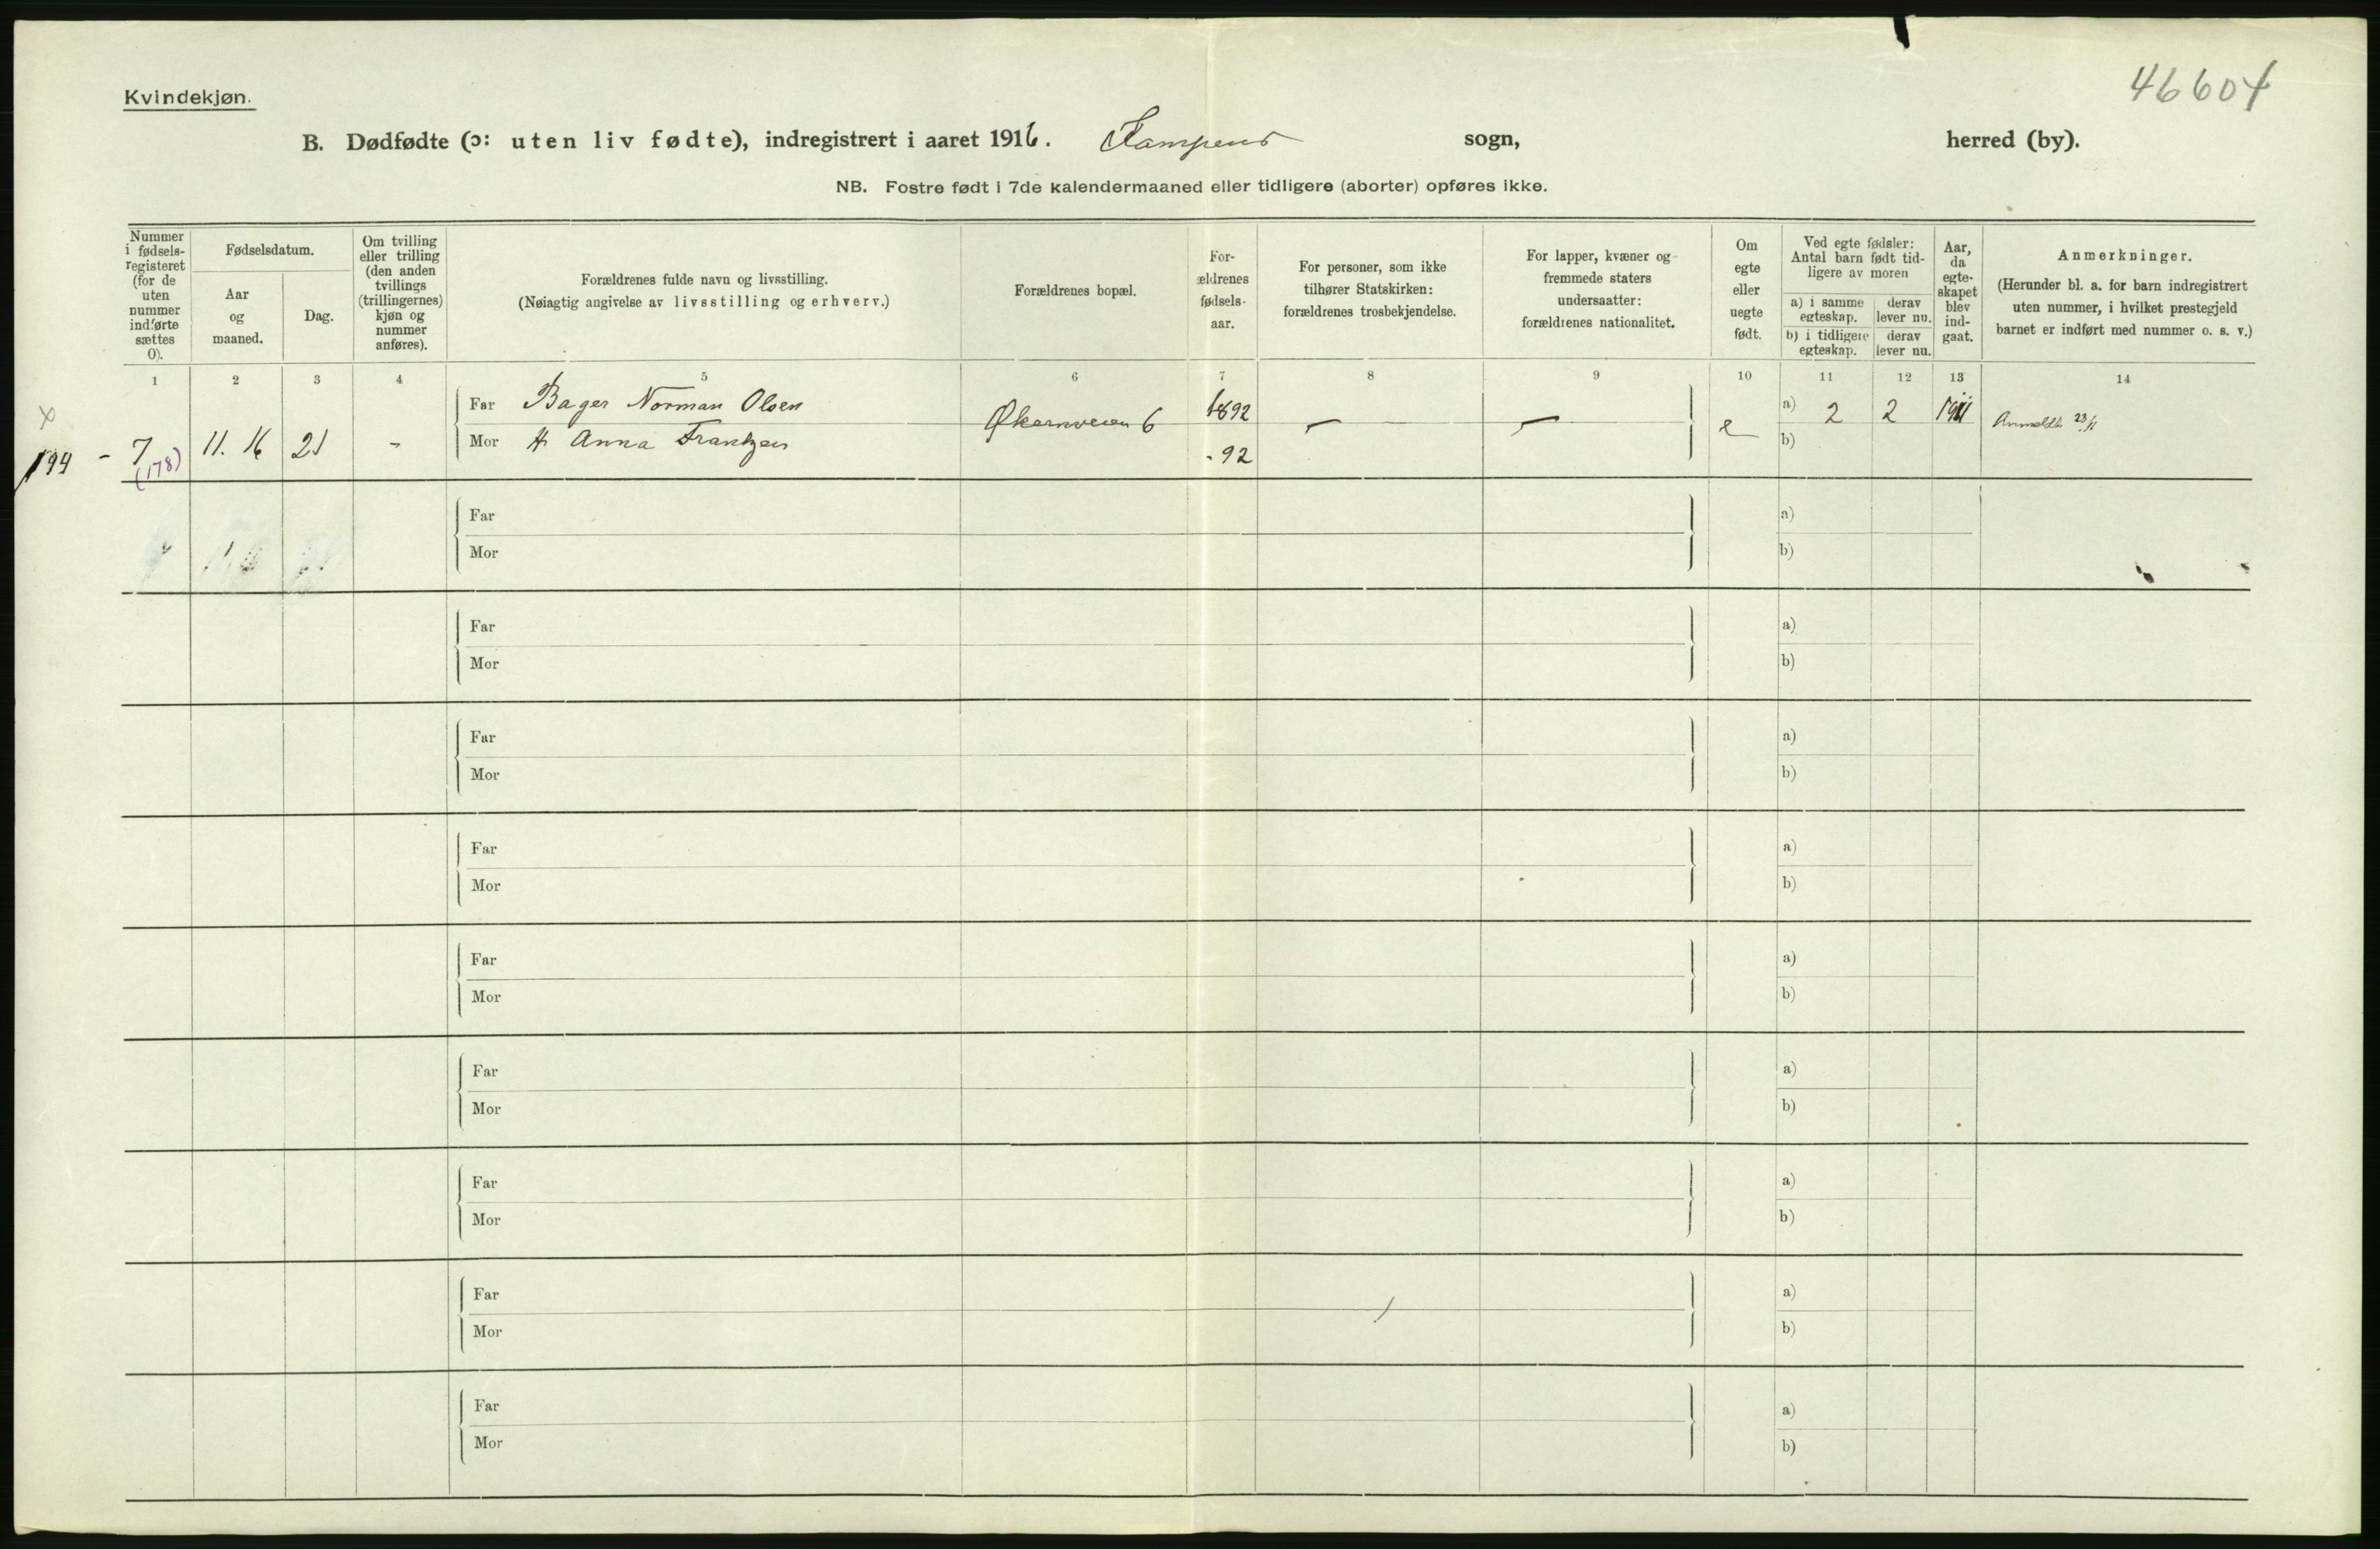 46604
Kvindekjøn.
B. Dødfødte (ɔ: uten liv fødte), indregistrert i aaret 1916. Kampens sogn, herred (by).
NB. Fostre født i 7de kalendermaaned eller tidligere (aborter) opføres ikke.
Nummer i fødsels-registeret (for de uten nummer indførte sættes 0).
Fødselsdatum.
Aar og maaned.
Dag.
Om tvilling eller trilling (den anden tvillings (trillingernes) kjøn og nummer anføres).
Forældrenes fulde navn og livsstilling.
(Nøiagtig angivelse av livsstilling og erhverv.)
Forældrenes bopæl.
For-ældrenes fødsels-aar.
For personer, som ikke tilhører Statskirken: forældrenes trosbekjendelse.
For lapper, kvæner og fremmede staters undersaatter: forældrenes nationalitet.
Om egte eller uegte født.
Ved egte fødsler: Antal barn født tid-ligere av moren
a) i samme egteskap.
derav lever nu.
b) i tidligere egteskap.
derav lever nu.
Aar, da egte-skapet blev ind-gaat.
Anmerkninger.
(Herunder bl. a. for barn indregistrert uten nummer, i hvilket prestegjeld barnet er indført med nummer o. s. v.)
1 2 3 4 5 6 7 8 9 10 11 12 13 14
x
194 - 7 (178) 11. 16 21 -
Far Bager Norman Olsen Økernveien 6 1892 — — e a) 2 2 1911 Anmeldt 23/11
Mor H Anna Frantzen - 92 b)
Far a)
Mor b)
Far a)
Mor b)
Far a)
Mor b)
Far a)
Mor b)
Far a)
Mor b)
Far a)
Mor b)
Far a)
Mor b)
Far a)
Mor b)
Far a)
Mor b)